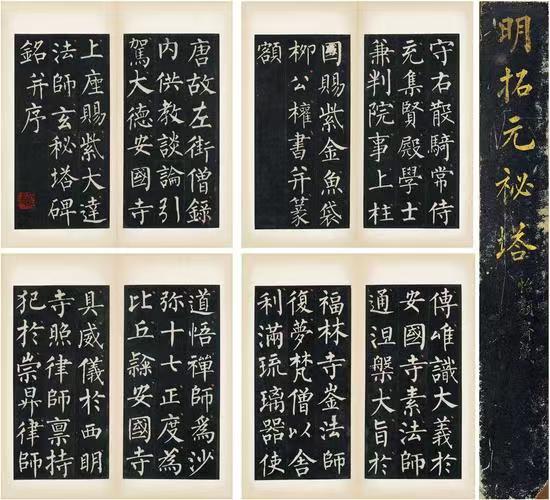 明拓元祕塔
唐故左街僧錄
内供教談論引
駕大德安國寺
上座賜紫大達
法師玄秘塔碑
銘并序
守右散騎常侍
充集賢殿學士
兼判院事上柱
國賜紫金魚袋
柳公權書并篆
額
道悟禪師為沙
弥十七正度為
比丘隸安國寺
具威儀於西明
寺照律師稟持
犯於崇昇律師
傳唯識大義於
安國寺素法師
通涅槃大旨於
福林寺崟法師
復夢梵僧以舍
利滿琉璃器使